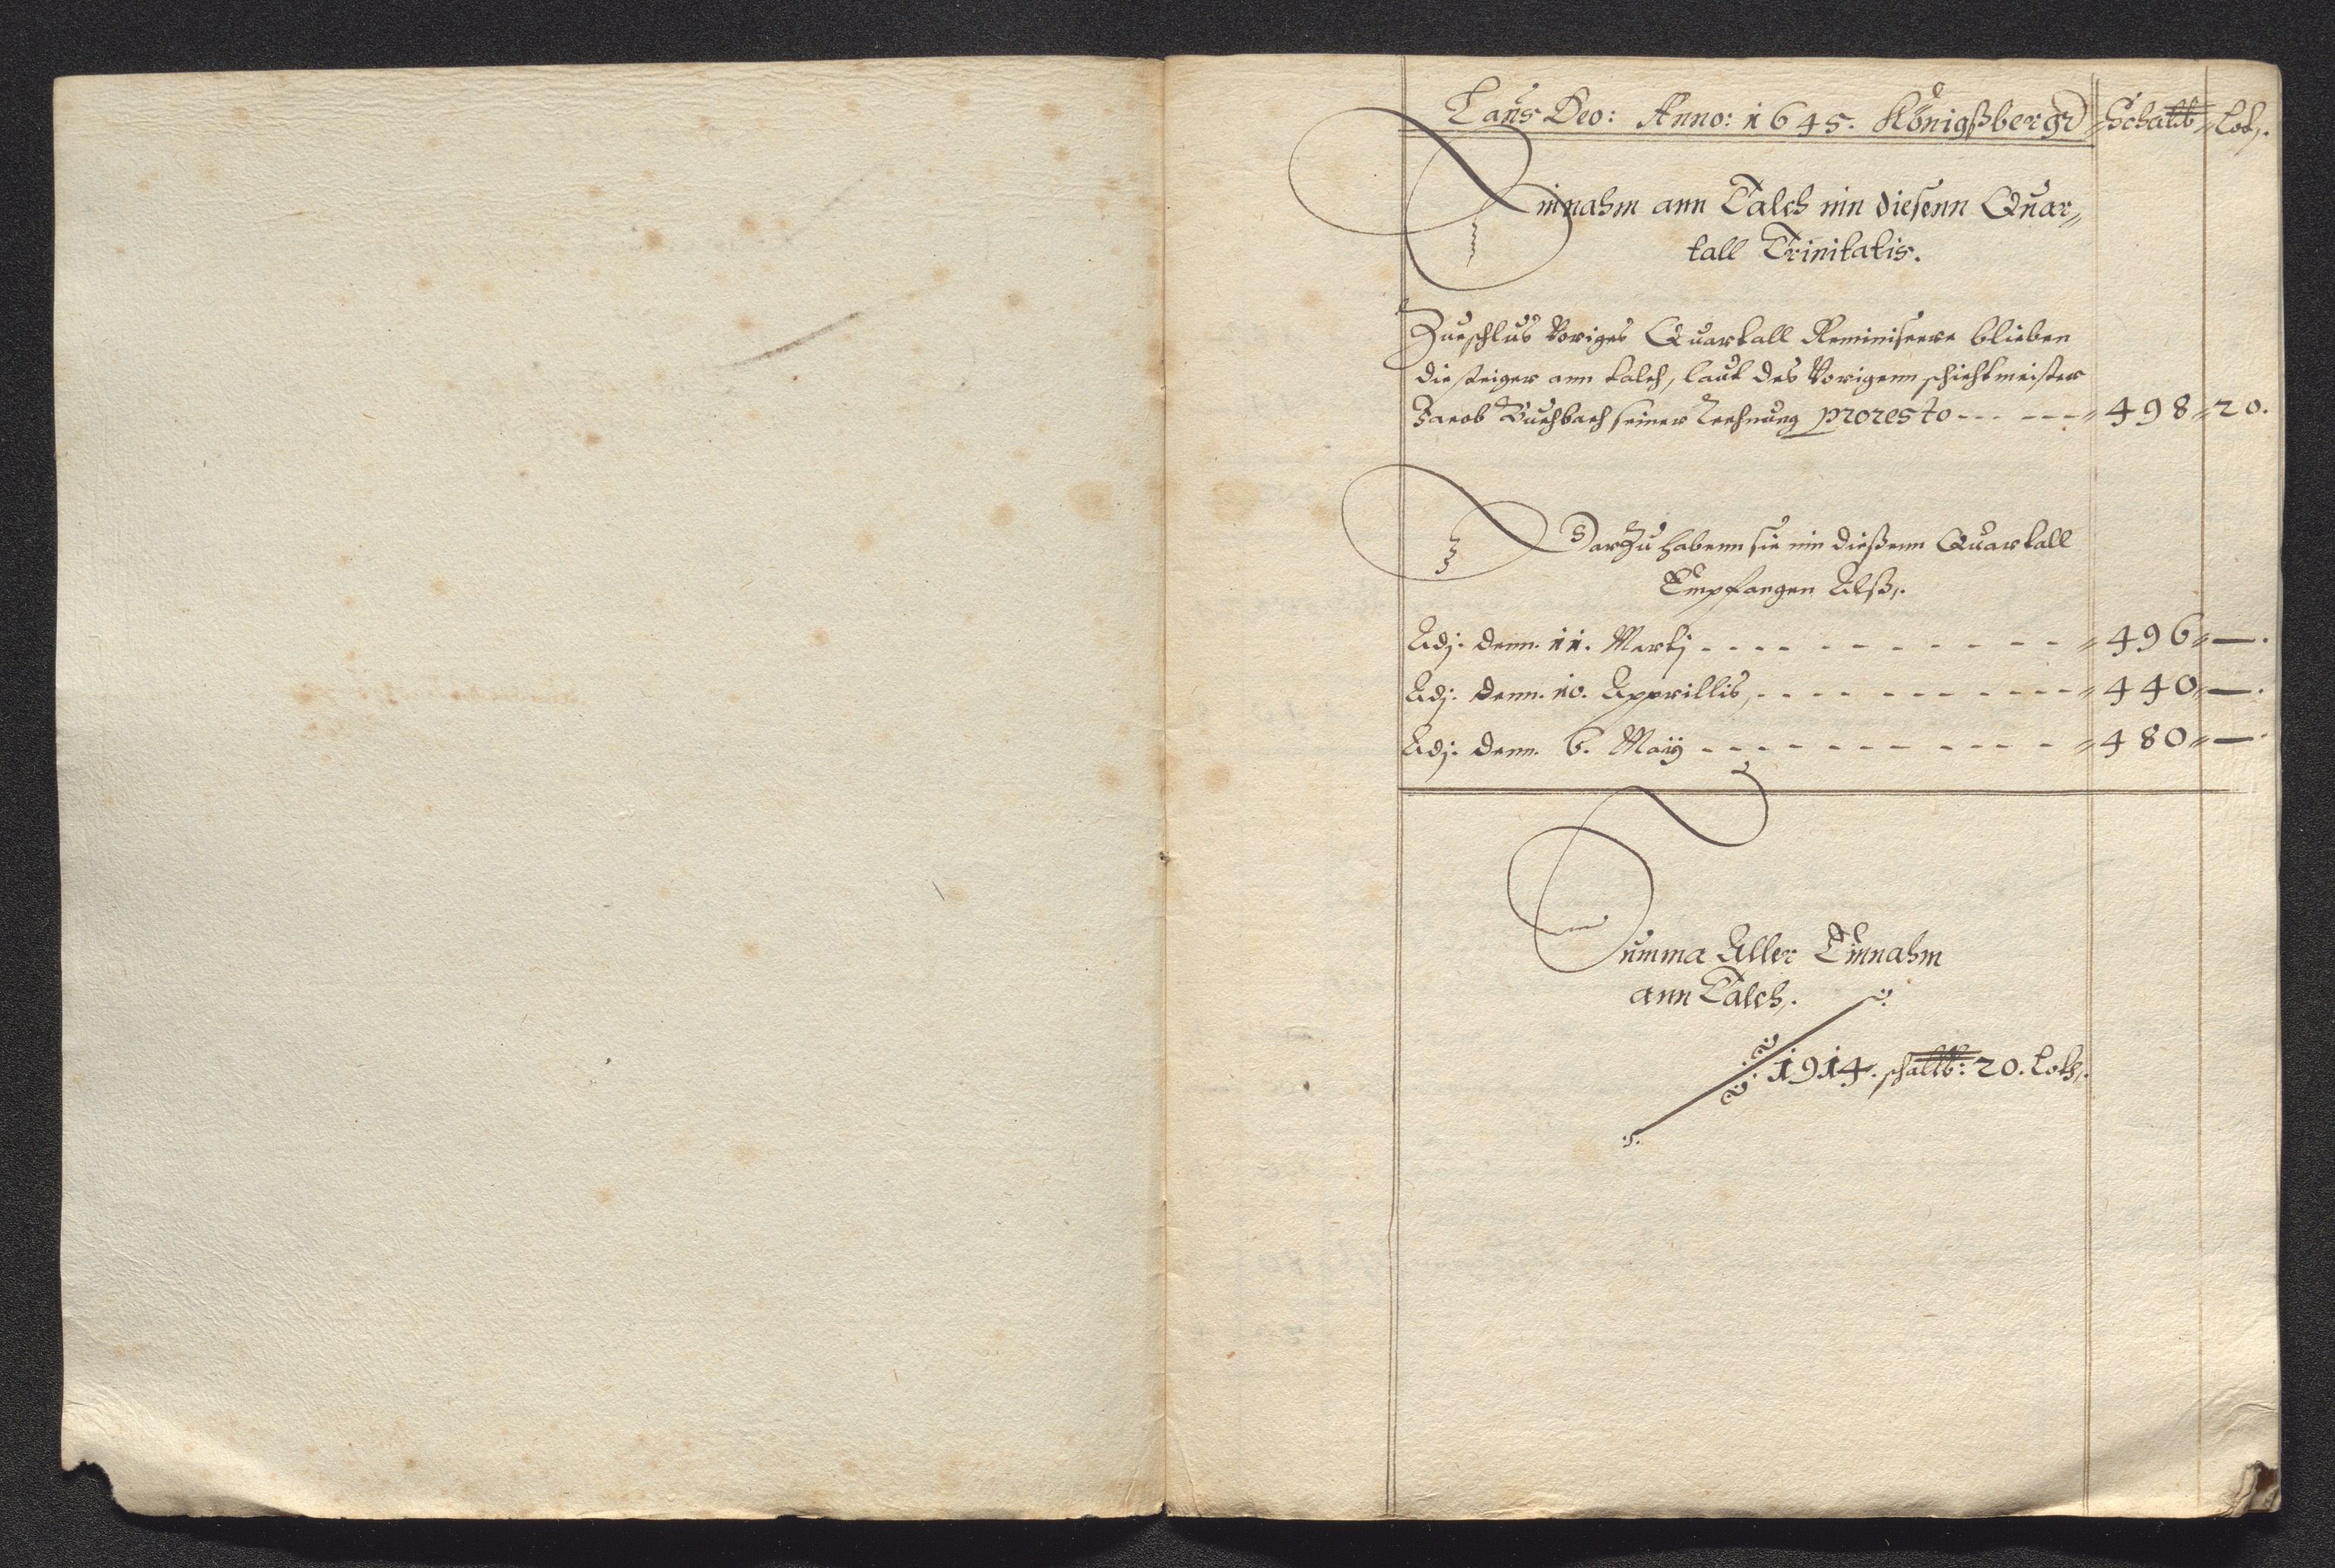 Laus Deo: Anno: 1645. Königsßbergk Scha℔ Loth.
Einnahm ann Talch inn diesenn Quar-
tall Trinitatis.
Zueschlus Voriges Quartall Reminiscere blieben
die steiger ann talch, laut des Vorigenn schichtmeister
Jacob Buchbach seiner rechnung pro resto - - - - - - 498 20.
Darzu habenn sie inn dießenn Quartall
Empfangen Alß.
Adj. denn. 11. Martj - - - - - - - - - - 496 —.
Adj. denn. 10. Apprillis, - - - - - - - - - - 440 —.
Adj. denn. 6. Maÿ - - - - - - - - - - 480 —.
Summa Aller Einnahm
ann Talch.
1914. schal℔: 20. Loth.